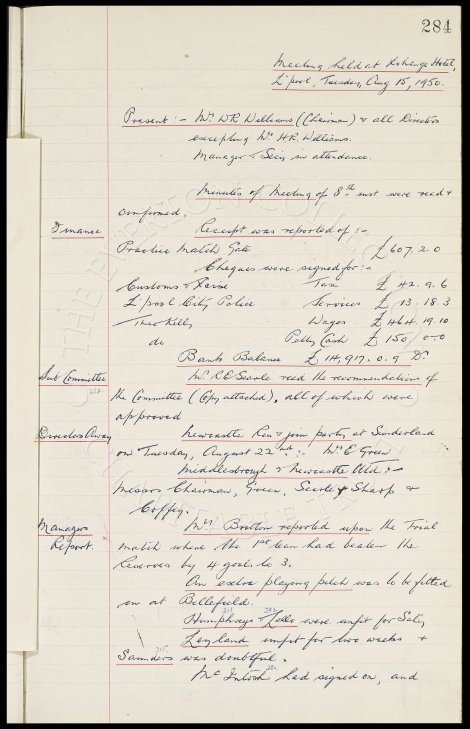 284
Meeting held at Xchange Hotel,
L'pool, Tuesday, Aug 15, 1950.
Present :- Mr W.R. Williams (Chairman) & all Directors
excepting Mr H.R. Williams.
Manager & Secy in attendance.
Minutes of Meeting of 8th inst were read &
confirmed.
Finance Receipt was reported of :-
Practice Match Gate £607.2.0
Cheques were signed for :-
Customs & Tax £ 42.9.6
L'pool City Police Services £ 13.18.3
Theo Kelly Wages £ 464.19.10
do Petty Cash £ 150.0.0
Bank Balance £14,917.0.9 Dr
Sub Committee Mr R.E. Searle read the recommendations of
the Committee (Copy attached), all of which were
approved
Directors Away Newcastle Res & join party at Sunderland
on Tuesday, August 22nd :- Mr C Green
Middlesbrough & Newcastle Utd :-
Messrs Chairman, Green, Searle, Sharp &
Coffey.
Managers Mr Britton reported upon the Trial
Report. match where the 1st team had beaten the
Reserves by 4 goals to 3.
An extra playing pitch was to be fitted
in at Bellefield.
Humphreys & Lello were unfit for Saty
Leyland unfit for two weeks &
Saunders was doubtful.
McIntosh had signed on, and